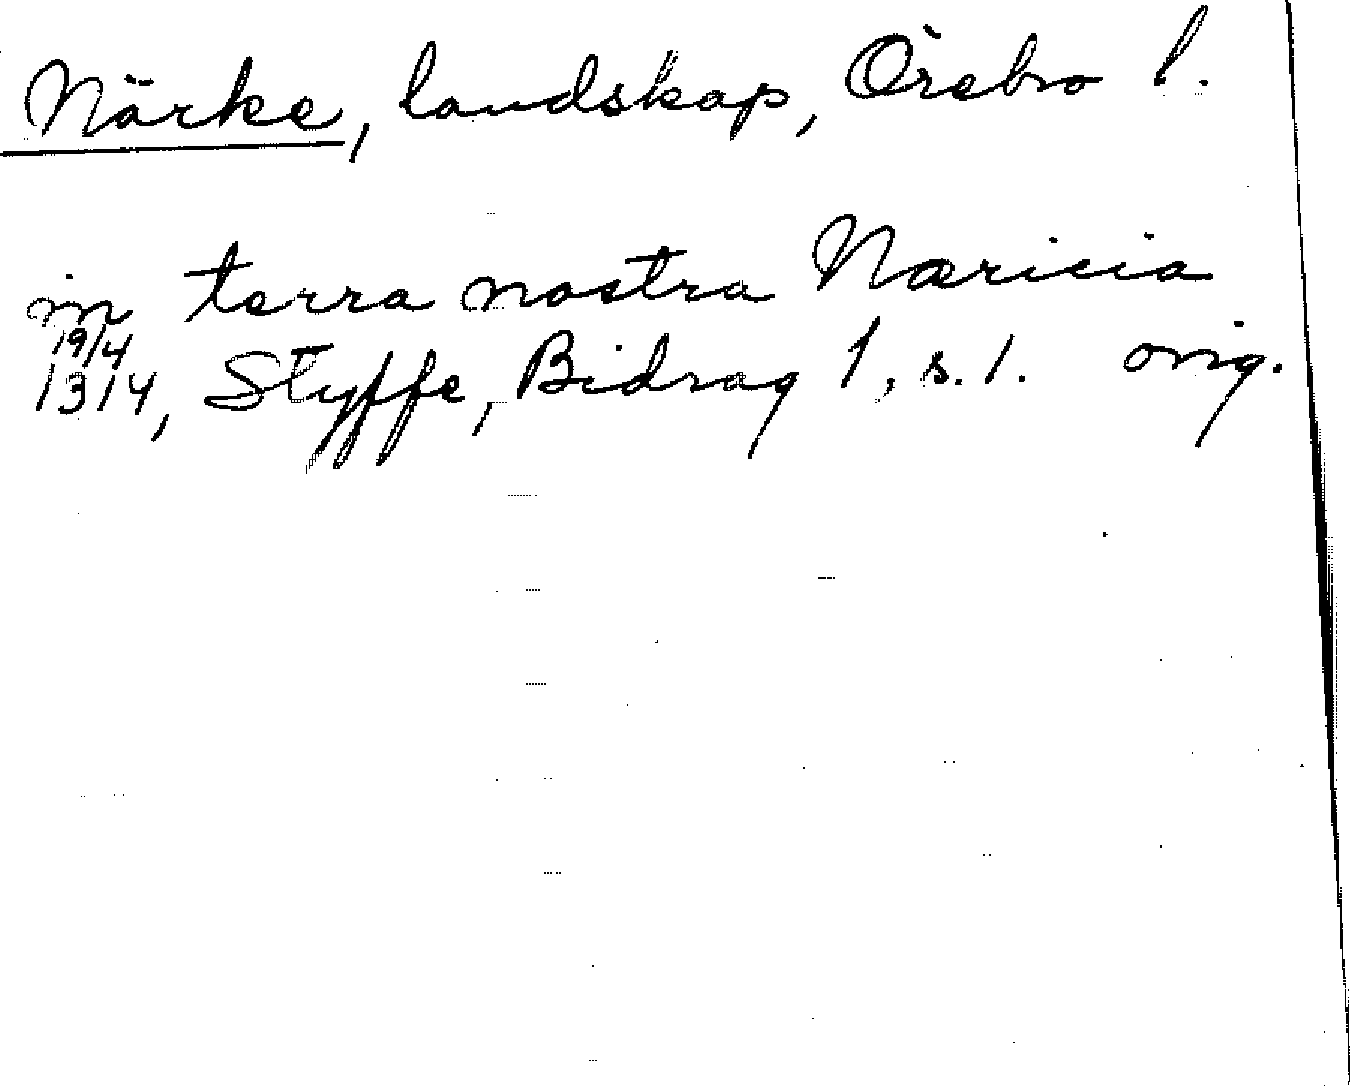 Närke, landskap, Örebro l.
in terra nostra Næricia
19/4
1314, Styffe, Bidrag 1, s. 1. orig.